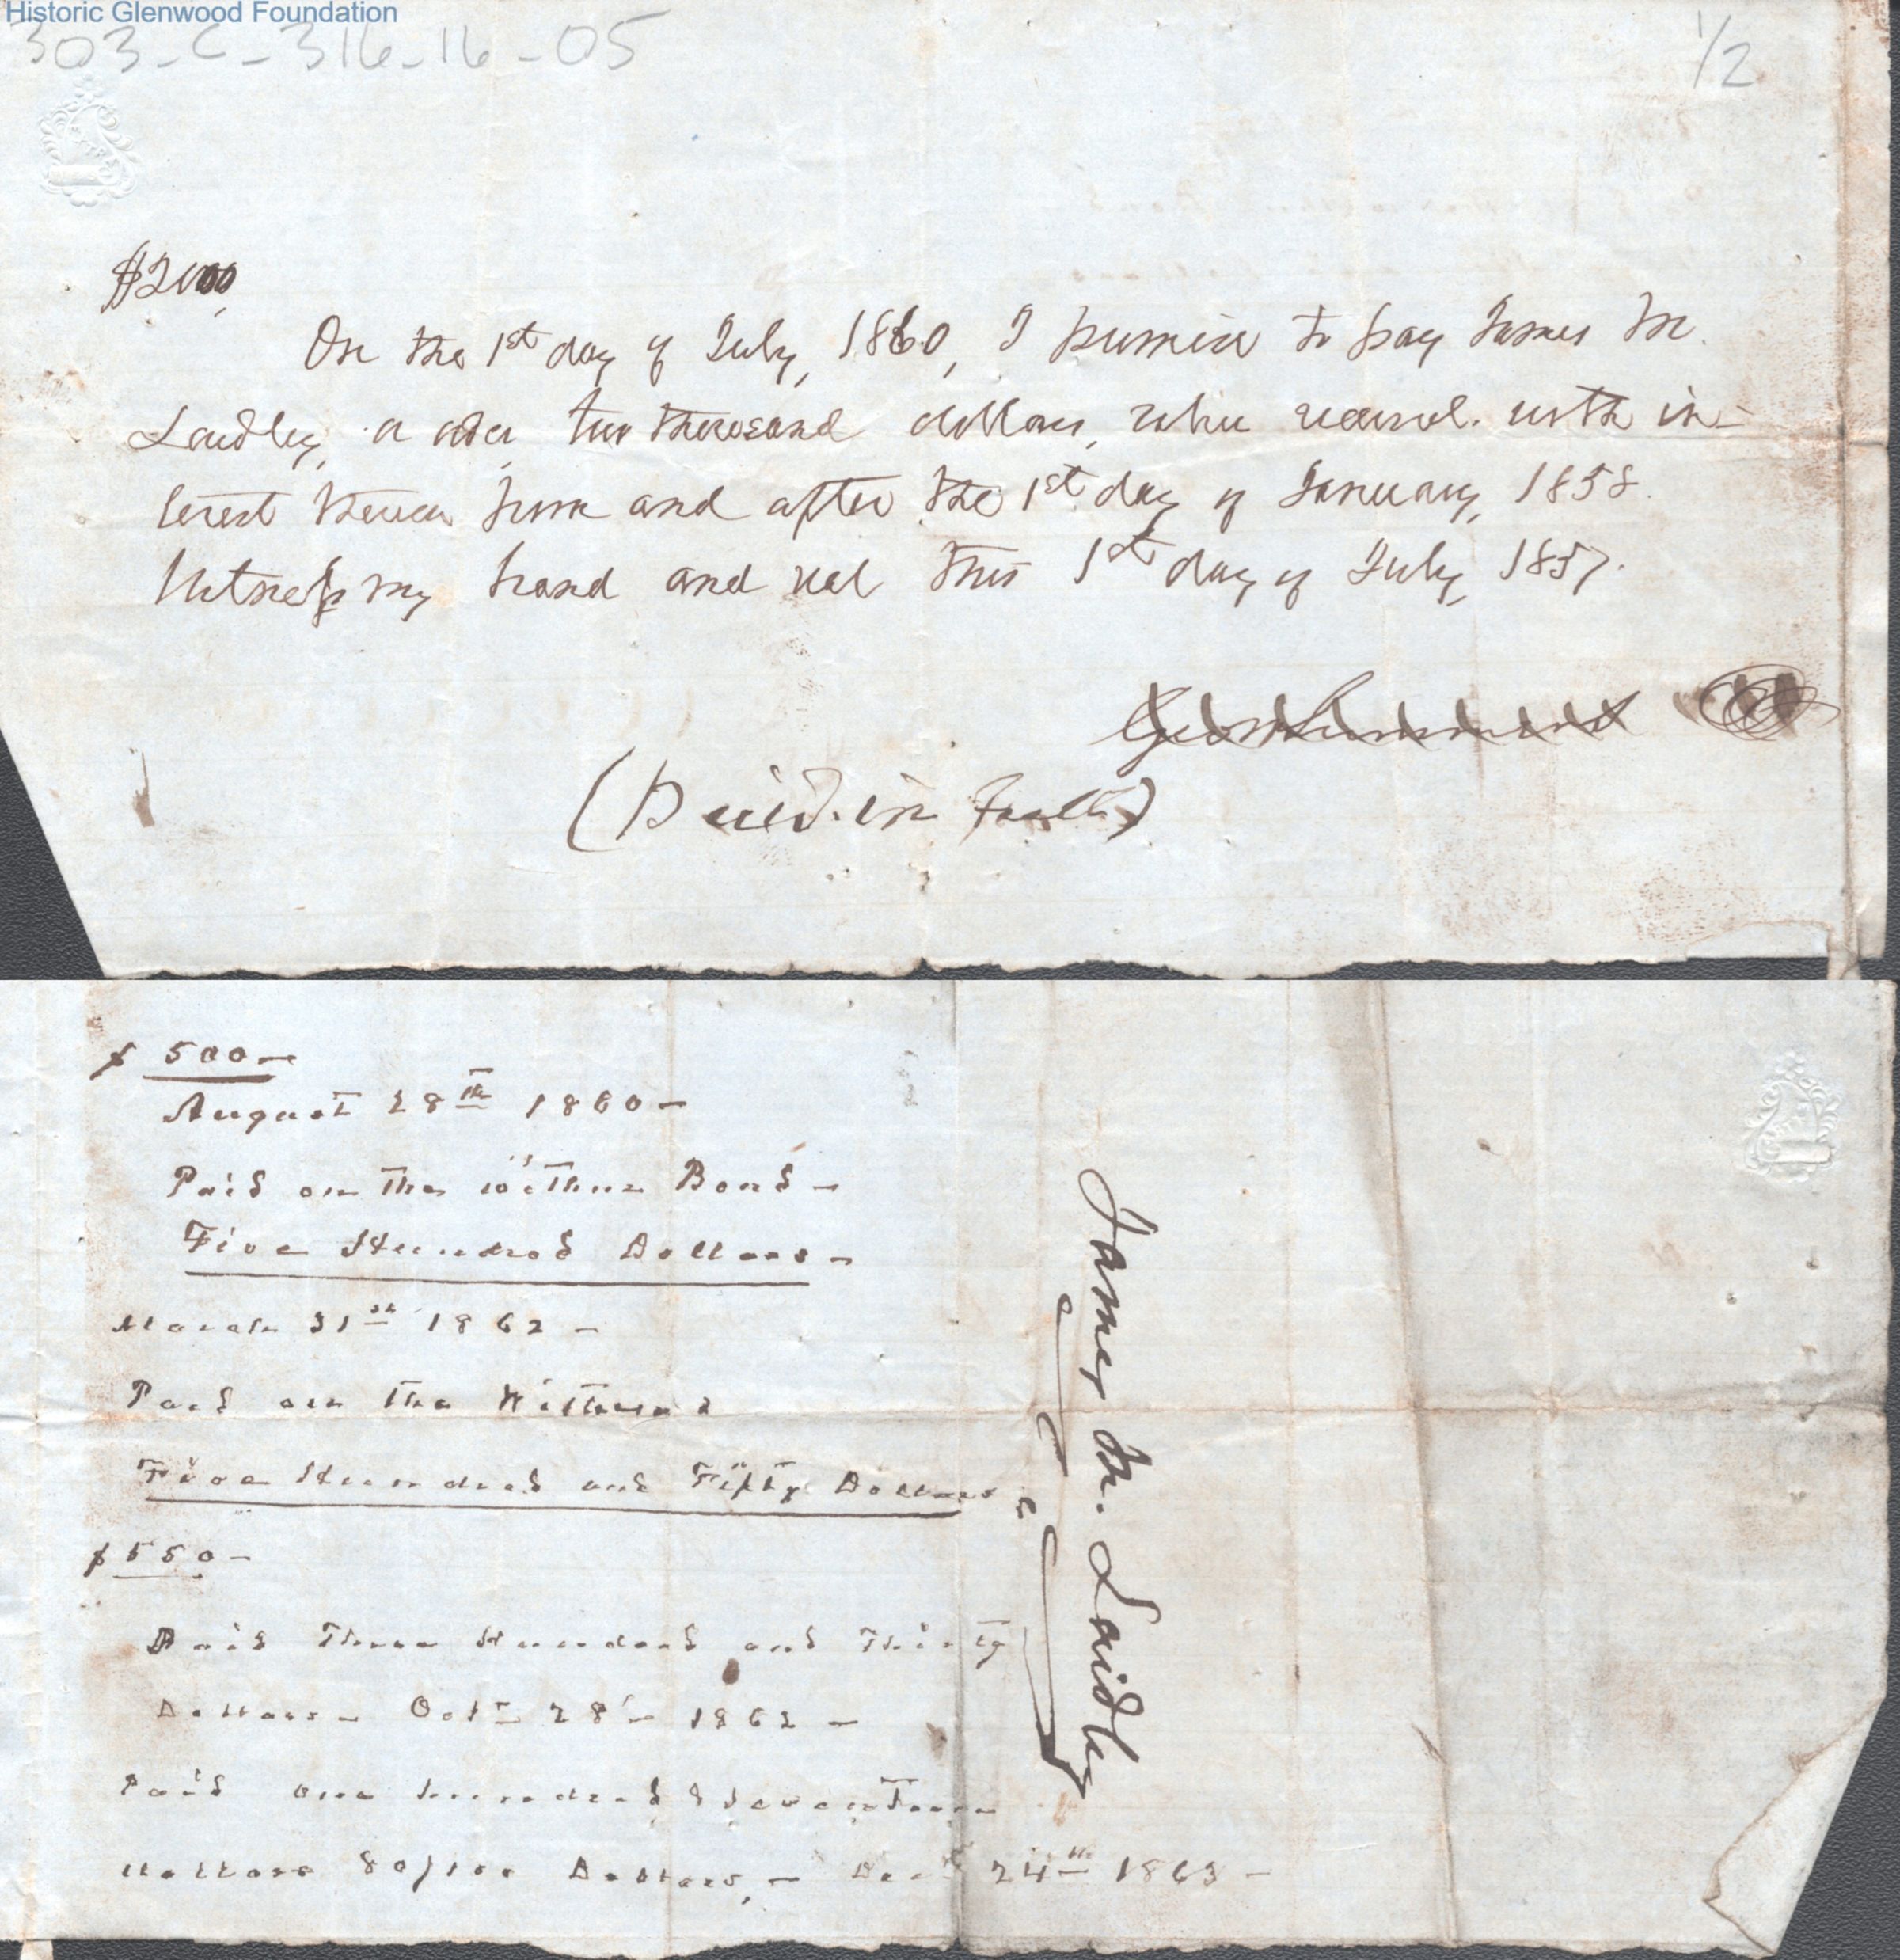 Historic Glenwood Foundation
303-C-316-16-05
1/2
$2000,
On the 1st day of July, 1860, I promise to pay James M.
Laidley, or order, two thousand dollars, value received. with in-
terest thereon from and after the 1st day of January, 1858.
Witness my hand and seal this 1st day of July, 1857.
Geo. W. Summers
(Paid in full)
$ 500-
August 28th 1860-
Paid on the within Bond-
Five Hundred Dollars-
March 31st 1862-
Paid on the Within
Five Hundred and Fifty Dollars
$550-
Paid Three Hundred and Thirty
Dollars- Octr 28th 1862-
Paid one hundred & Seventeen
Dollars 80/100 Dollars,- Decr 24th 1863-
James M. Laidley